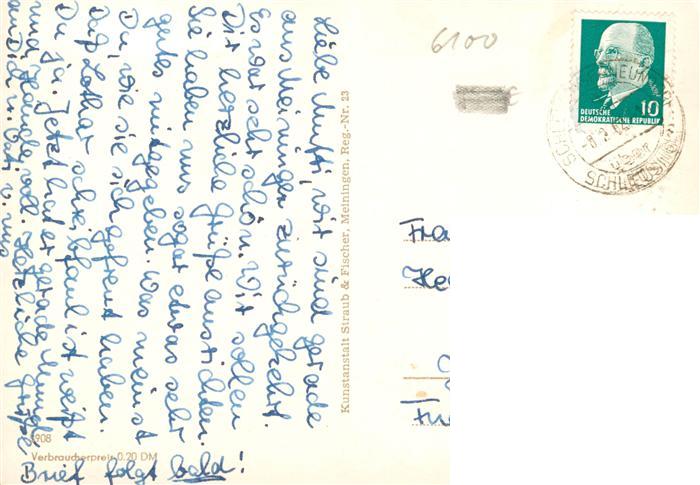 Liebe Mutti, wir sind gerade
aus Meiningen zurückgekehrt.
Es war sehr schön. Wir sollen
Dir herzliche Grüße ausrichten.
Sie haben uns sogar etwas sehr
gutes mitgegeben. Was meinst
Du, wie sie sich gefreut haben.
Daß Lothar schreibfaul ist weißt
Du ja. Jetzt hat er gerade
und Hände voll. Herzliche Grüße
an Dich u. Vati v. uns
Brief folgt bald!
Kunstanstalt Straub & Fischer, Meiningen, Reg.-Nr. 23
908
Verbraucherpreis 0.20 DM
6100
DEUTSCHE
DEMOKRATISCHE REPUBLIK
10
Fra
He
Fu